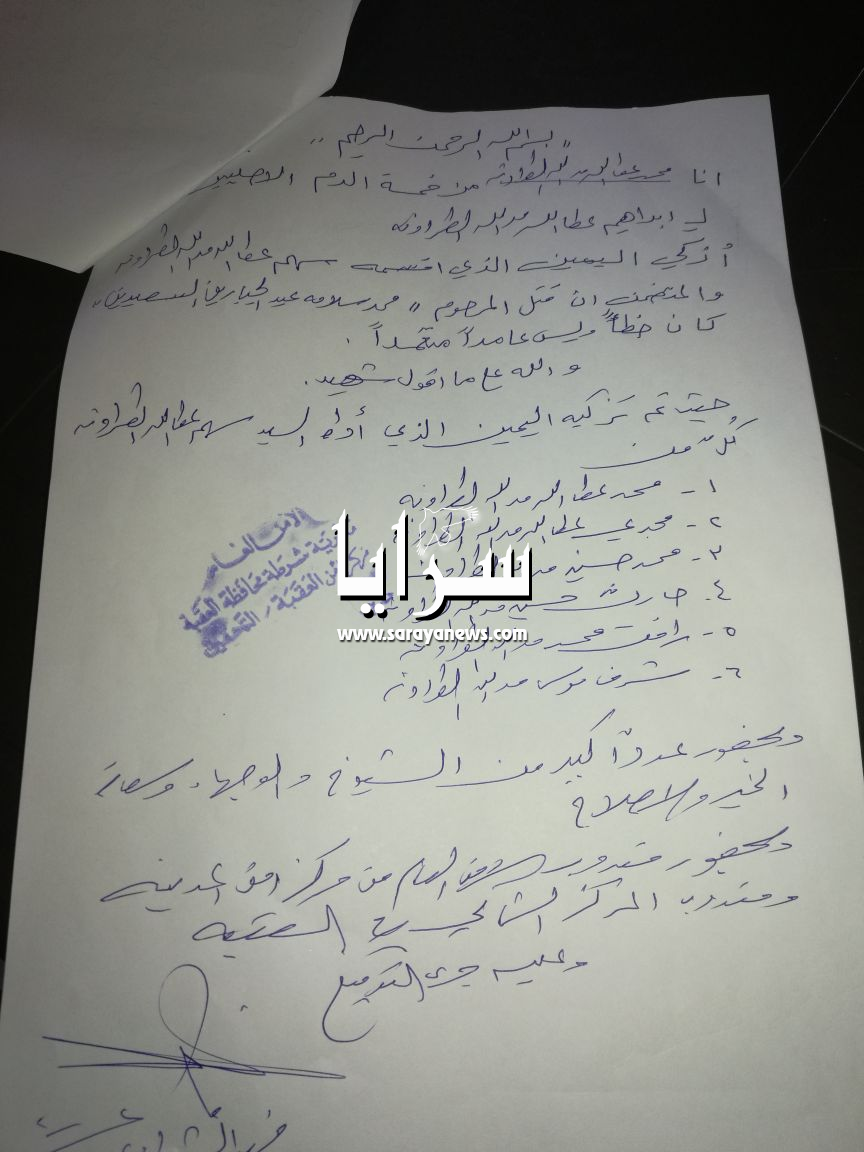 بسم الله الرحمن الرحيم ,,
انا محمد عطا الله مد الله الطراونه من خمسة الدم الاصليين
لـ ابراهيم عطا الله مد الله الطراونه
أُزكي اليمين الذي اقسمه سهم عطا الله مد الله الطراونه
والمتضمن ان قتل المرحوم " محمد سلامه عيد الحياري السعيديين "
كان خطأً وليس عامداً متعمداً .
والله على ما اقول شهيد .
حيث تم تزكيه اليمين الذي أداه السيد سهم عطا الله الطراونه
كُلّ من
١- محمد عطا الله مد الله الطراونه
٢- مجدي عطا الله مد الله
٣- محمد حسين
٤- حارث حسين مد الله
٥- رافت محمد مد الله الطراونه
٦- شرف موسى مد الله الطراونه
الامن العام
مديرية شرطة محافظة العقبة
سرايا
www.sarayanews.com
وبحضور عددٌ كبير من الشيوخ والوجهاء وسعاة
الخير والاصلاح
وبحضور مندوب الامن العام من مركز امن المدينه
ومندوب المركز الشمالي العقبه
وعليه جرى التوقيع